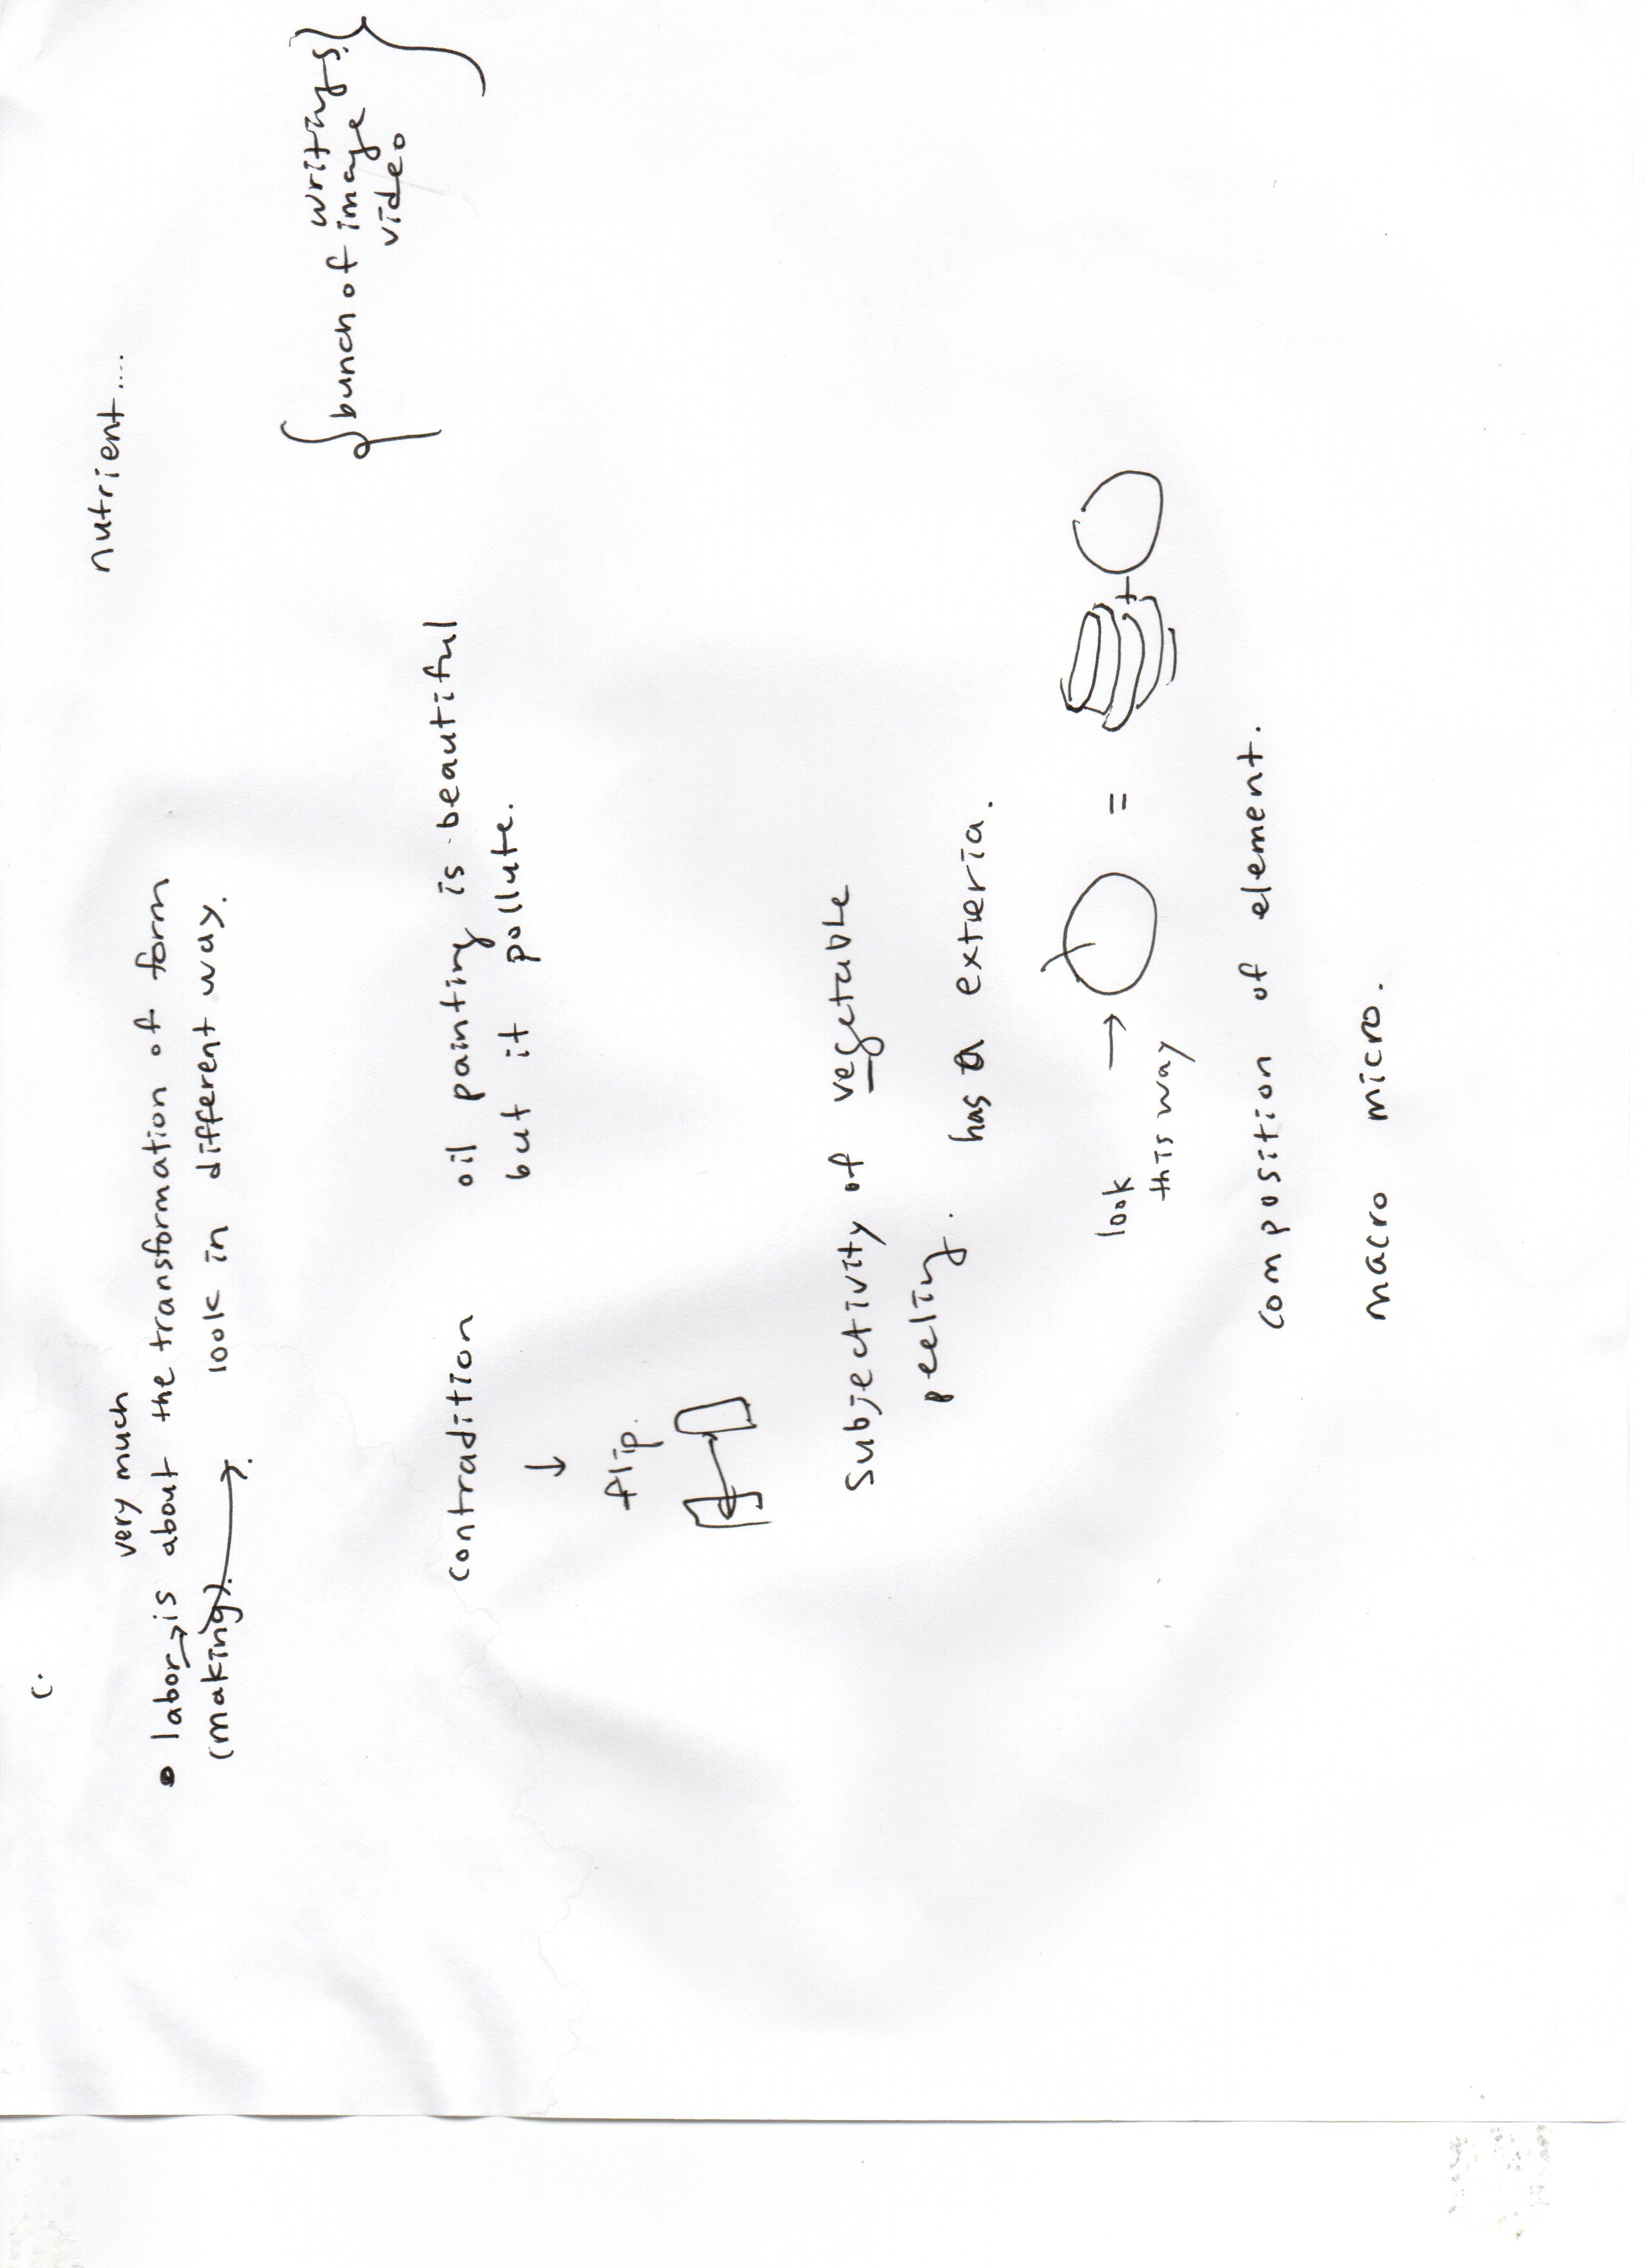 c.
nutrient....
very much
labor is about the transformation of form
(making). look in different way.
bunch of writings.
image
video
contradition
oil painting is beautiful
but it pollute.
flip.
subjectivity of vegetable
peeling.
has a exteria.
look
this way
=
+
composition of element.
macro micro.